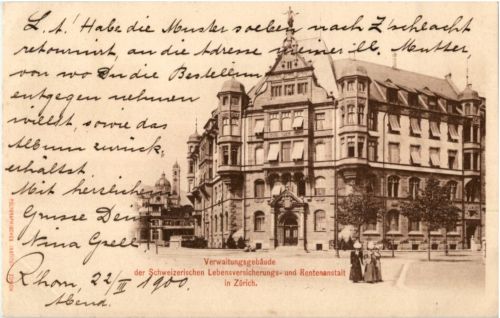 L. A.! Habe die Muster soeben nach Z'schlacht
retournirt, an die Adresse meiner lb. Mutter
von wo Du die Bestellun
entgegen nehmen
willst, sowie das
Album zurück
erhältst
Mit herzlichen
Grüsse Dein
Nina
22/III 1900.
Abend.
Verwaltungsgebäude
der Schweizerischen Lebensversicherungs- und Rentenanstalt
in Zürich.